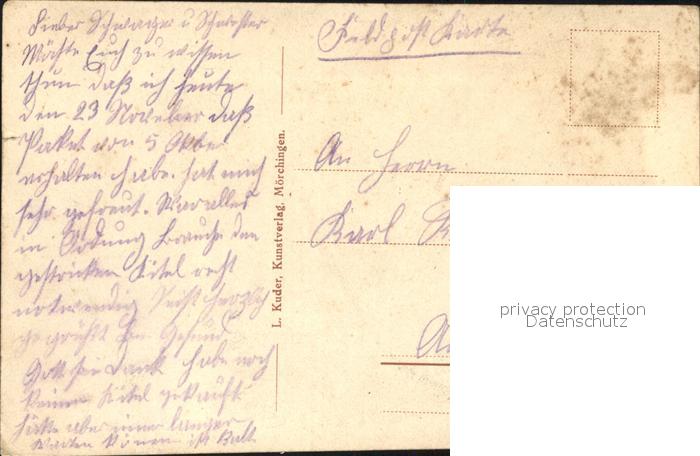 Lieber Schwager u Schwester
Möchte Euch zu wissen
thun daß ich heute
den 23 November daß
Paket von 5 Oktber
erhalten habe. hat mich
sehr gefreut. War alles
in Ordung brauche den
gestricken Kitel recht
notwendig Seist herzlich
gegrüßt bin Gesund
Gott sei Dank habe noch
keinen Kitel gekauft
hätte aber nimer langer
warten könen ist kalt
L. Kuder, Kunstverlag, Mörchingen.
Feldpost Karte
An Herrn
Karl
privacy protection
Datenschutz